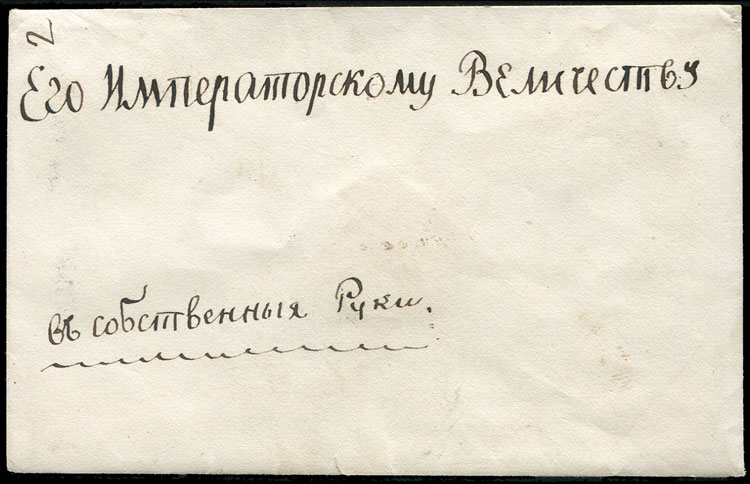 2
Его Императорскому Величеству
въ собственныя Руки.